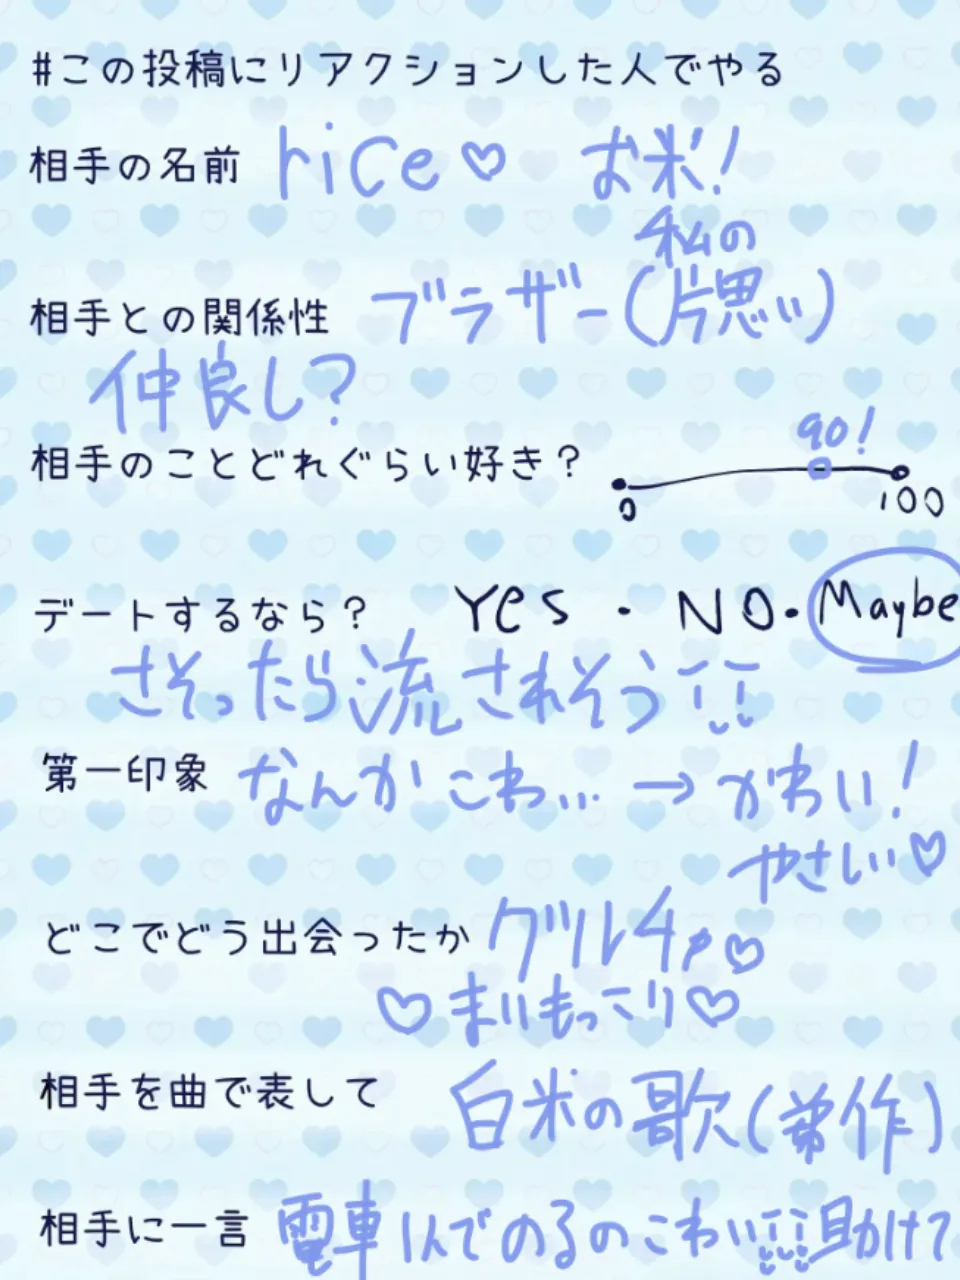 #この投稿にリアクションした人でやる
相手の名前 rice♡ お米!
私の
相手との関係性 ブラザー(片思い)
仲良し?
90!
相手のことどれぐらい好き?
0 100
デートするなら? Yes・NO・Maybe
さそったら流されそう
第一印象 なんかこわい… → かわいい!
やさしい♡
どこでどう出会ったか グルチャ♡
♡まりもっこり♡
相手を曲で表して 白米の歌(弟作)
相手に一言 電車1人でのるのこわい!!助けて